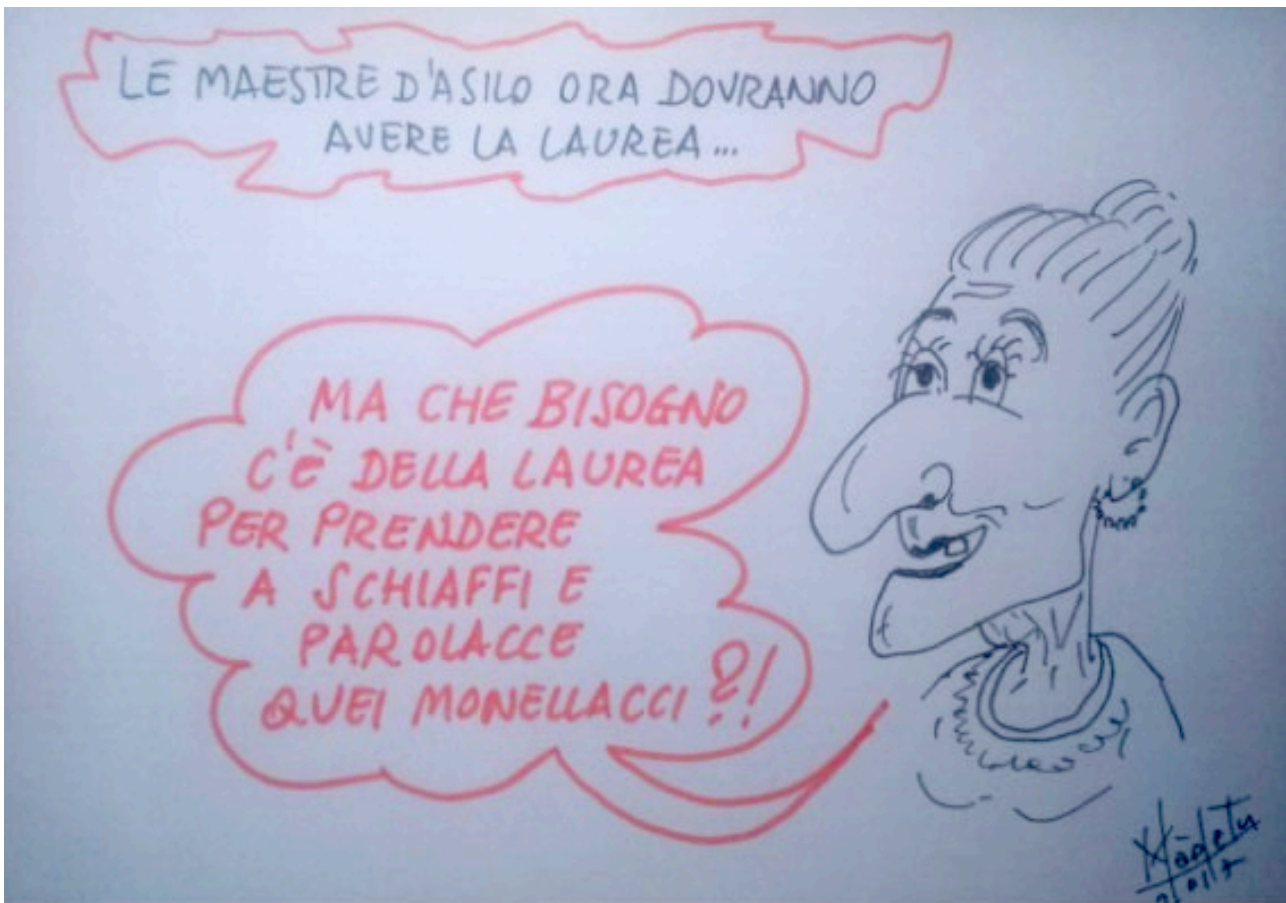 LE MAESTRE D'ASILO ORA DOVRANNO
AVERE LA LAUREA...
MA CHE BISOGNO
C'È DELLA LAUREA
PER PRENDERE
A SCHIAFFI E
PAROLACCE
QUEI MONELLACCI?!